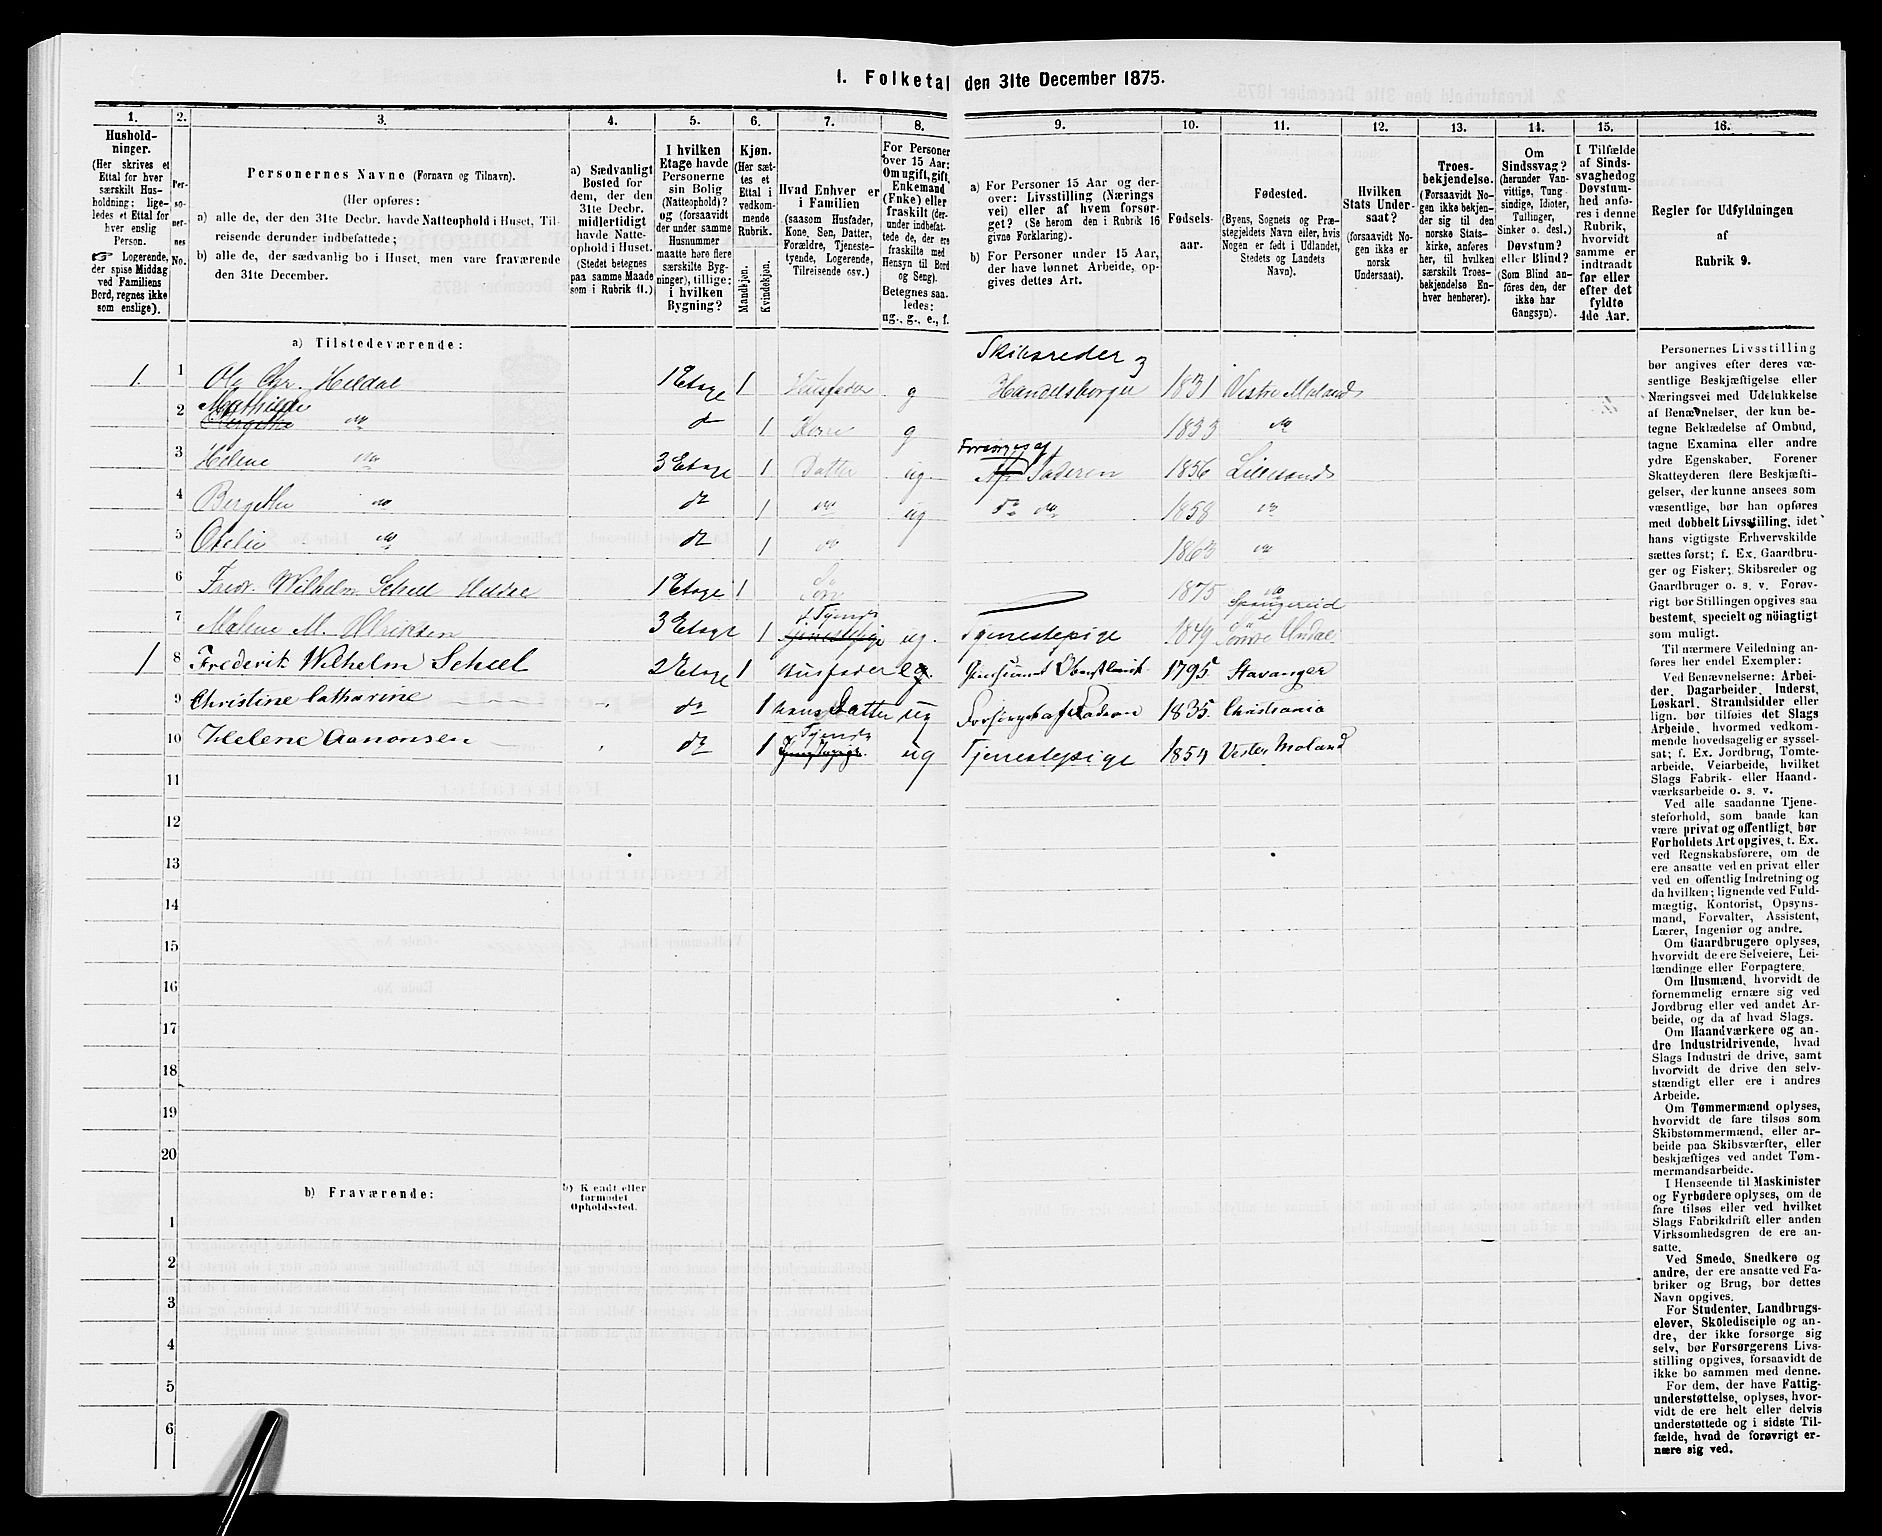 1. Folketal den 31te December 1875.
1. 2. 3. 4. 5. 6. 7. 8. 9. 10. 11. 12. 13. 14. 15. 16.
Hushold-
ninger.
(Her skrives et
Ettal for hver
særskilt Hus-
holdning; lige-
ledes et Ettal for
hver enslig
Person.
☞ Logerende,
der spise Middag
ved Familiens
Bord, regnes ikke
som enslige).
Per-
so-
ner-
nes
No.
Personernes Navne (Fornavn og Tilnavn).
(Her opføres:
a) alle de, der den 31te Decbr. havde Natteophold i Huset, Til-
reisende derunder indbefattede;
b) alle de, der sædvanlig bo i Huset, men vare fraværende
den 31te December.
a) Sædvanligt
Bosted for
dem, der den
31te Decbr.
midlertidigt
havde Natte-
ophold i Huset.
(Stedet betegnes
paa samme Maade
som i Rubrik 11.)
I hvilken
Etage havde
Personerne
sin Bolig
(Natteophold)?
og (forsaavidt
der under samme
Husnummer
maatte høre flere
særskilte Byg-
ninger), tillige:
i hvilken
Bygning?
Kjøn.
(Her sæt-
tes et
Ettal i
vedkom-
mende
Rubrik.
Mandkjøn.
Kvindekjøn.
Hvad Enhver er
i Familien
(saasom Husfader,
Kone, Søn, Datter,
Forældre, Tjeneste-
tyende, Logerende,
Tilreisende osv.)
For Personer
over 15 Aar:
Om ugift, gift,
Enkemand
(Enke) eller
fraskilt (der-
under indbefat-
tede de, der ere
fraskilte med
Hensyn til Bord
og Seng).
Betegnes saa-
ledes:
ug., g., e., f.
a) For Personer 15 Aar og der-
over: Livsstilling (Nærings
vei) eller af hvem forsør-
get? (Se herom den i Rubrik 16
givne Forklaring).
b) For Personer under 15 Aar,
der have lønnet Arbeide, op-
gives dettes Art.
Fødsels-
aar.
Fødested.
(Byens, Sognets og Præ-
stegjeldets Navn eller, hvis
Nogen er født i Udlandet,
Stedets og Landets
Navn).
Hvilken
Stats Under-
saat?
(forsaavidt No-
gen ikke er
norsk
Undersaat).
Troes-
bekjendelse.
(Forsaavidt No-
gen ikke bekjen-
der sig til den
norske Stats-
kirke, anføres
her, til hvilken
særskilt Troes-
bekjendelse En-
hver henhører).
Om
Sindssvag?
(herunder Van-
vittige, Tung-
sindige, Idioter,
Tullinger,
Sinker o. desl.)
Døvstum?
eller Blind?
(Som Blind an-
føres den, der
ikke har
Gangsyn).
I Tilfælde
af Sinds-
svaghed og
Døvstum-
hed anfø-
res i denne
Rubrik,
hvorvidt
samme er
indtraadt
før eller
efter det
fyldte
4de Aar.
Regler for Udfyldningen
af
Rubrik 9.
a) Tilstedeværende:
Skibsreder &
1. 1 Ole Chr. Heldal 1 Etage 1 Husfader g Handelsborger 1831 Vestre Moland
Mathilde
2 Bergethe do do 1 Kone g 1833 do
Forsørges af
3 Helene do 3 Etage 1 Datter ug. Af Faderen 1856 Lillesand
4 Bergethe do do 1 do ug do do 1858 do
5 do do 1 do 1863 do
6 Fredr. Wilhelm Scheel Heldal 1 Etage 1 Søn 1875 do
7 Malene M. 3 Etage 1 Tjenestepige ug. Tjenestepige 1849 Spangereid Søndre Undal
1 8 Frederik Wilhelm Scheel 2 Etage 1 Husfader e 1795. Stavanger
9 Christine Catharine do 1 hans Datter ug Forsørges af Faderen 1835. Christiania
10 Helene Aanonsen do 1 Tjenestepige ug Tjenestepige 1854 Vester Moland
11
12
13
14
15
16
17
18
19
20
b) Fraværende:
b) Kjendt eller
formodet
Opholdssted.
1
2
3
4
5
6
Personernes Livsstilling
bør angives efter deres væ-
sentlige Beskjæftigelse eller
Næringsvei med Udelukkelse
af Benævnelser, der kun be-
tegne Beklædelse af Ombud,
tagne Examina eller andre
ydre Egenskaber. Forener
Skatteyderen flere Beskjæfti-
gelser, der kunne ansees som
væsentlige, bør han opføres
med dobbelt Livsstilling, idet
hans vigtigste Erhvervskilde
sættes først; f. Ex. Gaardbru-
ger og Fisker; Skibsreder og
Gaardbruger o. s. v. Forøv-
rigt bør Stillingen opgives saa
bestemt, specielt og nöiagtigt
som muligt.
Til nærmere Veiledning an-
føres her endel Exempler:
Ved Benævnelserne: Arbei-
der, Dagarbeider, Inderst,
Løskarl, Strandsidder eller
lign. bør tilføies det Slags
Arbeide, hvormed vedkom-
mende hovedsagelig er syssel-
sat; f. Ex. Jordbrug, Tomte-
arbeide, Veiarbeide, hvilket
Slags Fabrik- eller Haand-
værksarbeide o. s. v.
Ved alle saadanne Tjene-
steforhold, som baade kan
være privat og offentligt, bør
Forholdets Art opgives, t. Ex.
ved Regnskabsførere, om de
ere ansatte ved en privat eller
ved en offentlig Indretning og
da hvilken; lignende ved Fuld-
mægtig, Kontorist, Opsyns-
mand, Forvalter, Assistent,
Lærer, Ingeniør og andre.
Om Gaardbrugere oplyses,
hvorvidt de ere Selveiere, Lei-
lændinge eller Forpagtere.
Om Husmænd, hvorvidt de
fornemmelig ernære sig ved
Jordbrug eller ved andet Ar-
beide, og da af hvad Slags.
Om Haandværkere og an-
dre Industridrivende, hvad
Slags Industri de drive, samt
hvorvidt de drive den selv-
stændigt eller ere i andres
Arbeide.
Om Tømmermænd oplyses,
hvorvidt de fare tilsøs som
Skibstømmermænd, eller ar-
beide paa Skibsværfter, eller
beskjæftiges ved andet Tøm-
mermandsarbeide.
I Henseende til Maskinister
og Fyrbødere oplyses, om de
fare tilsøs eller ved hvilket
Slags Fabrikdrift eller anden
Virksomhedsgren de ere an-
satte.
Ved Smede, Snedkere og
andre, der ere ansatte ved Fa-
briker og Brug, bør dettes
Navn opgives.
For Studenter, Landbrugs-
elever, Skoledisciple og an-
dre, der ikke forsørge sig
selv, bør Forsørgerens Livs-
stilling opgives, forsaavidt de
ikke bo sammen med denne.
For dem, der have Fattig-
understøttelse, oplyses, hvor-
vidt de ere helt eller delvis
understøttede og i sidste Til-
fælde, hvad de forøvrigt er-
nære sig ved.